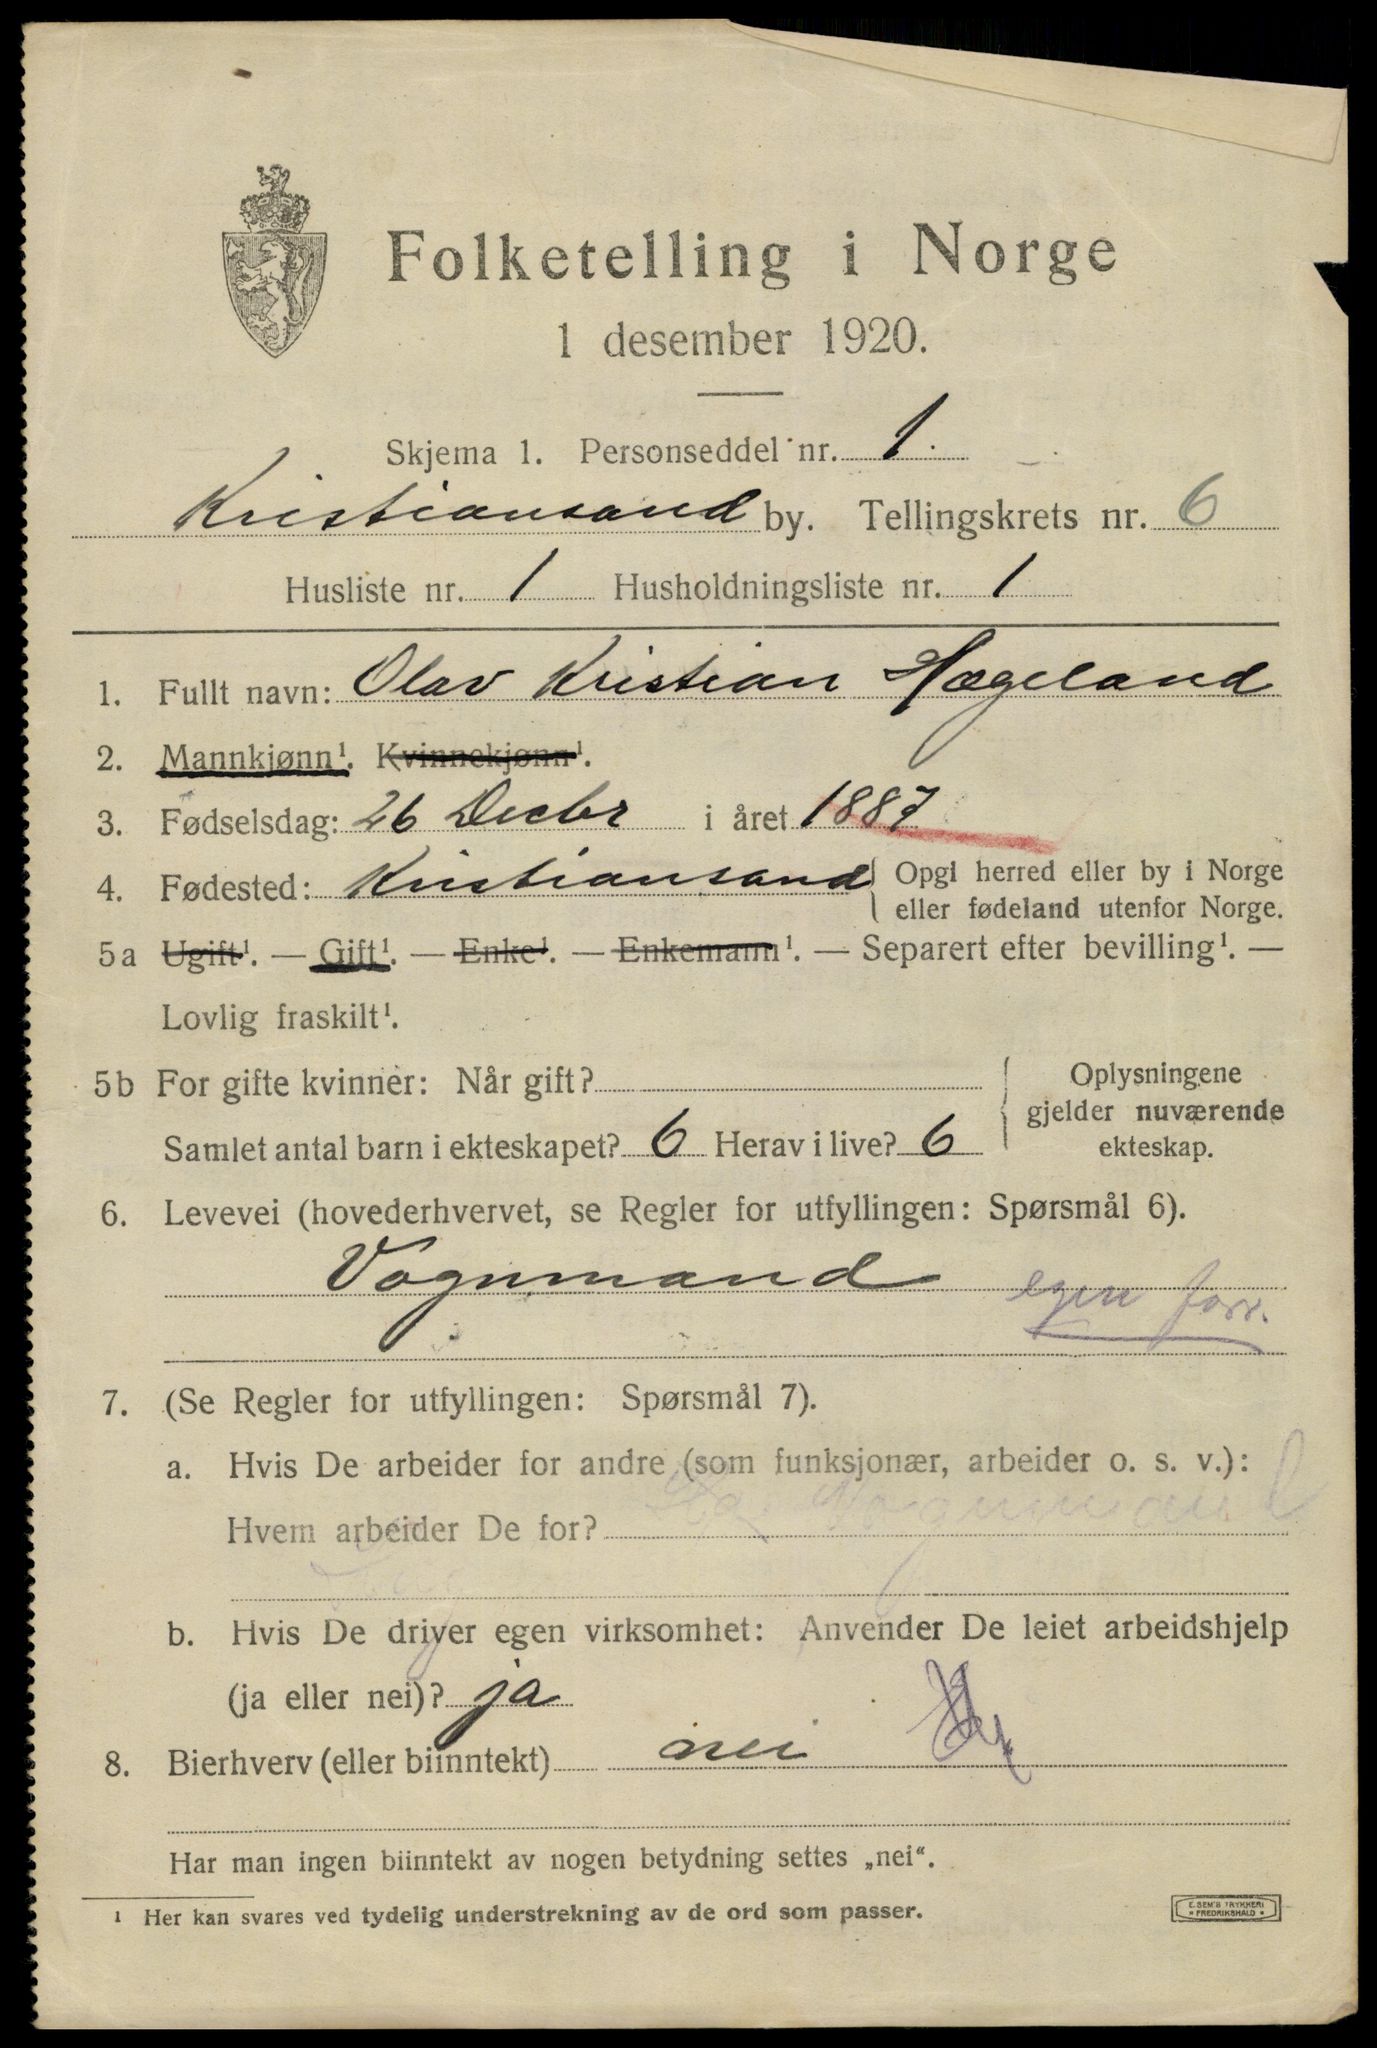 Folketelling i Norge
1 desember 1920.
Skjema 1. Personseddel nr. 1.
Kristiansand by. Tellingskrets nr. 6
Husliste nr. 1 Husholdningsliste nr. 1
1. Fullt navn: Olav Kristian Hægeland
2. Mannkjønn¹. Kvinnekjønn¹.
3. Fødselsdag: 26 Decbr i året 1887
4. Fødested: Kristiansand { Opgi herred eller by i Norge
eller fødeland utenfor Norge.
5a Ugift¹. — Gift¹. — Enke¹. — Enkemann¹. — Separert efter bevilling¹. —
Lovlig fraskilt¹.
5b For gifte kvinner: Når gift?
Samlet antal barn i ekteskapet? 6 Herav i live? 6
{ Oplysningene
gjelder nuværende
ekteskap.
6. Levevei (hovederhvervet, se Regler for utfyllingen: Spørsmål 6).
Vognmand egen forr.
7. (Se Regler for utfyllingen: Spørsmål 7).
a. Hvis De arbeider for andre (som funksjonær, arbeider o. s. v.):
Hvem arbeider De for? Vognmand
b. Hvis De driver egen virksomhet: Anvender De leiet arbeidshjelp
(ja eller nei)? ja
8. Bierhverv (eller biinntekt) nei
Har man ingen biinntekt av nogen betydning settes „nei“.
¹ Her kan svares ved tydelig understrekning av de ord som passer.
E. SEM'S TRYKKERI
* FREDRIKSHALD *